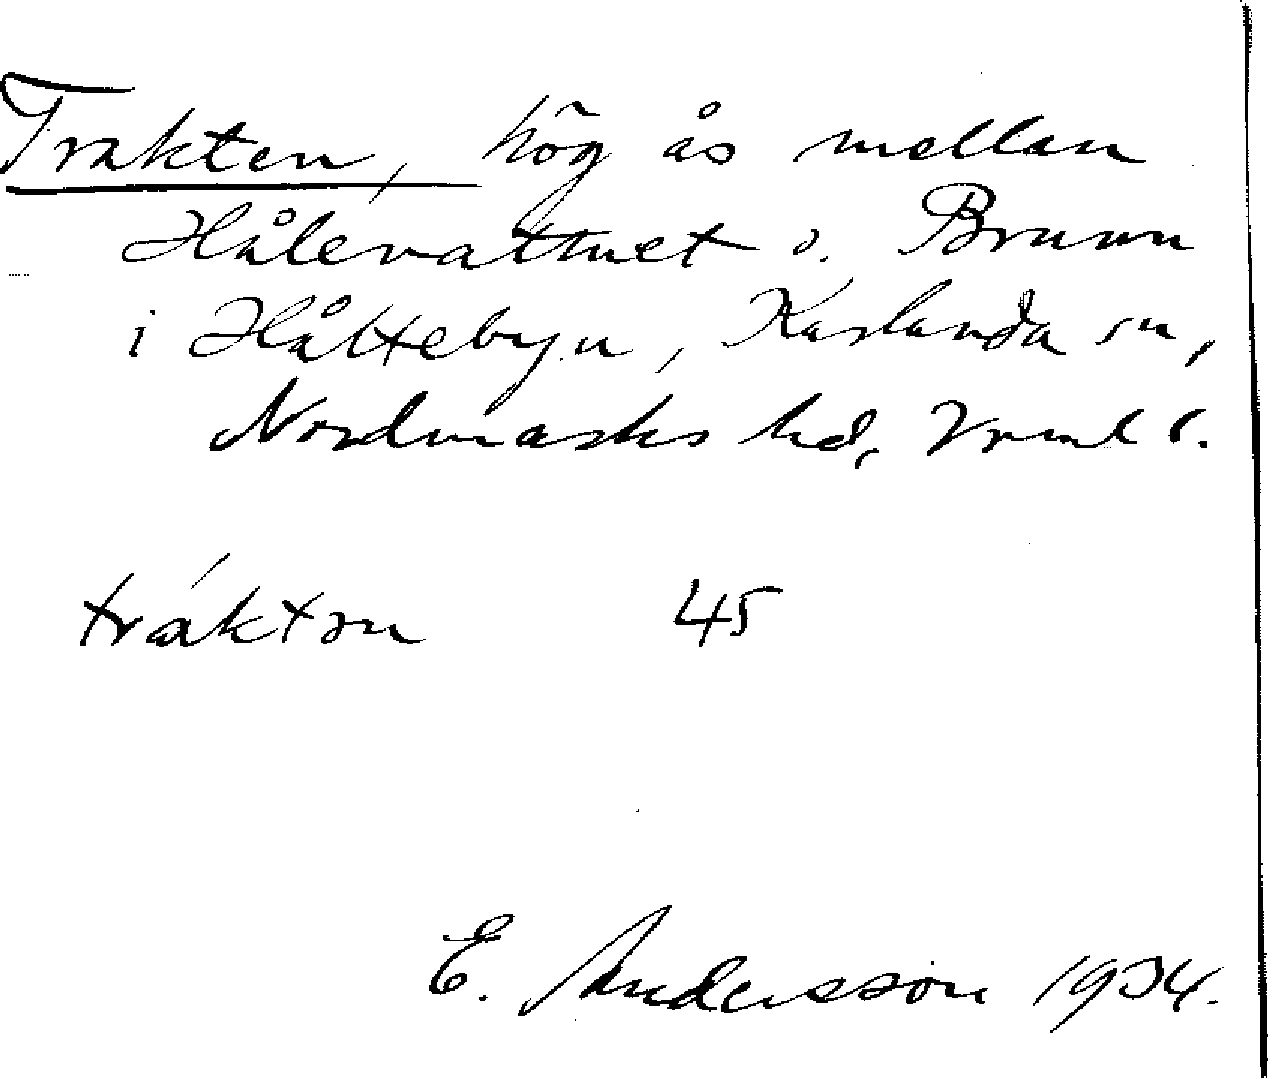 Trakten, hög ås mellan
Hålevattnet o. Brunn
i Håltebyn, Karlanda sn,
Nordmarks hd, Vrml l.
tráktɜn 45
E. Andersson 1934.